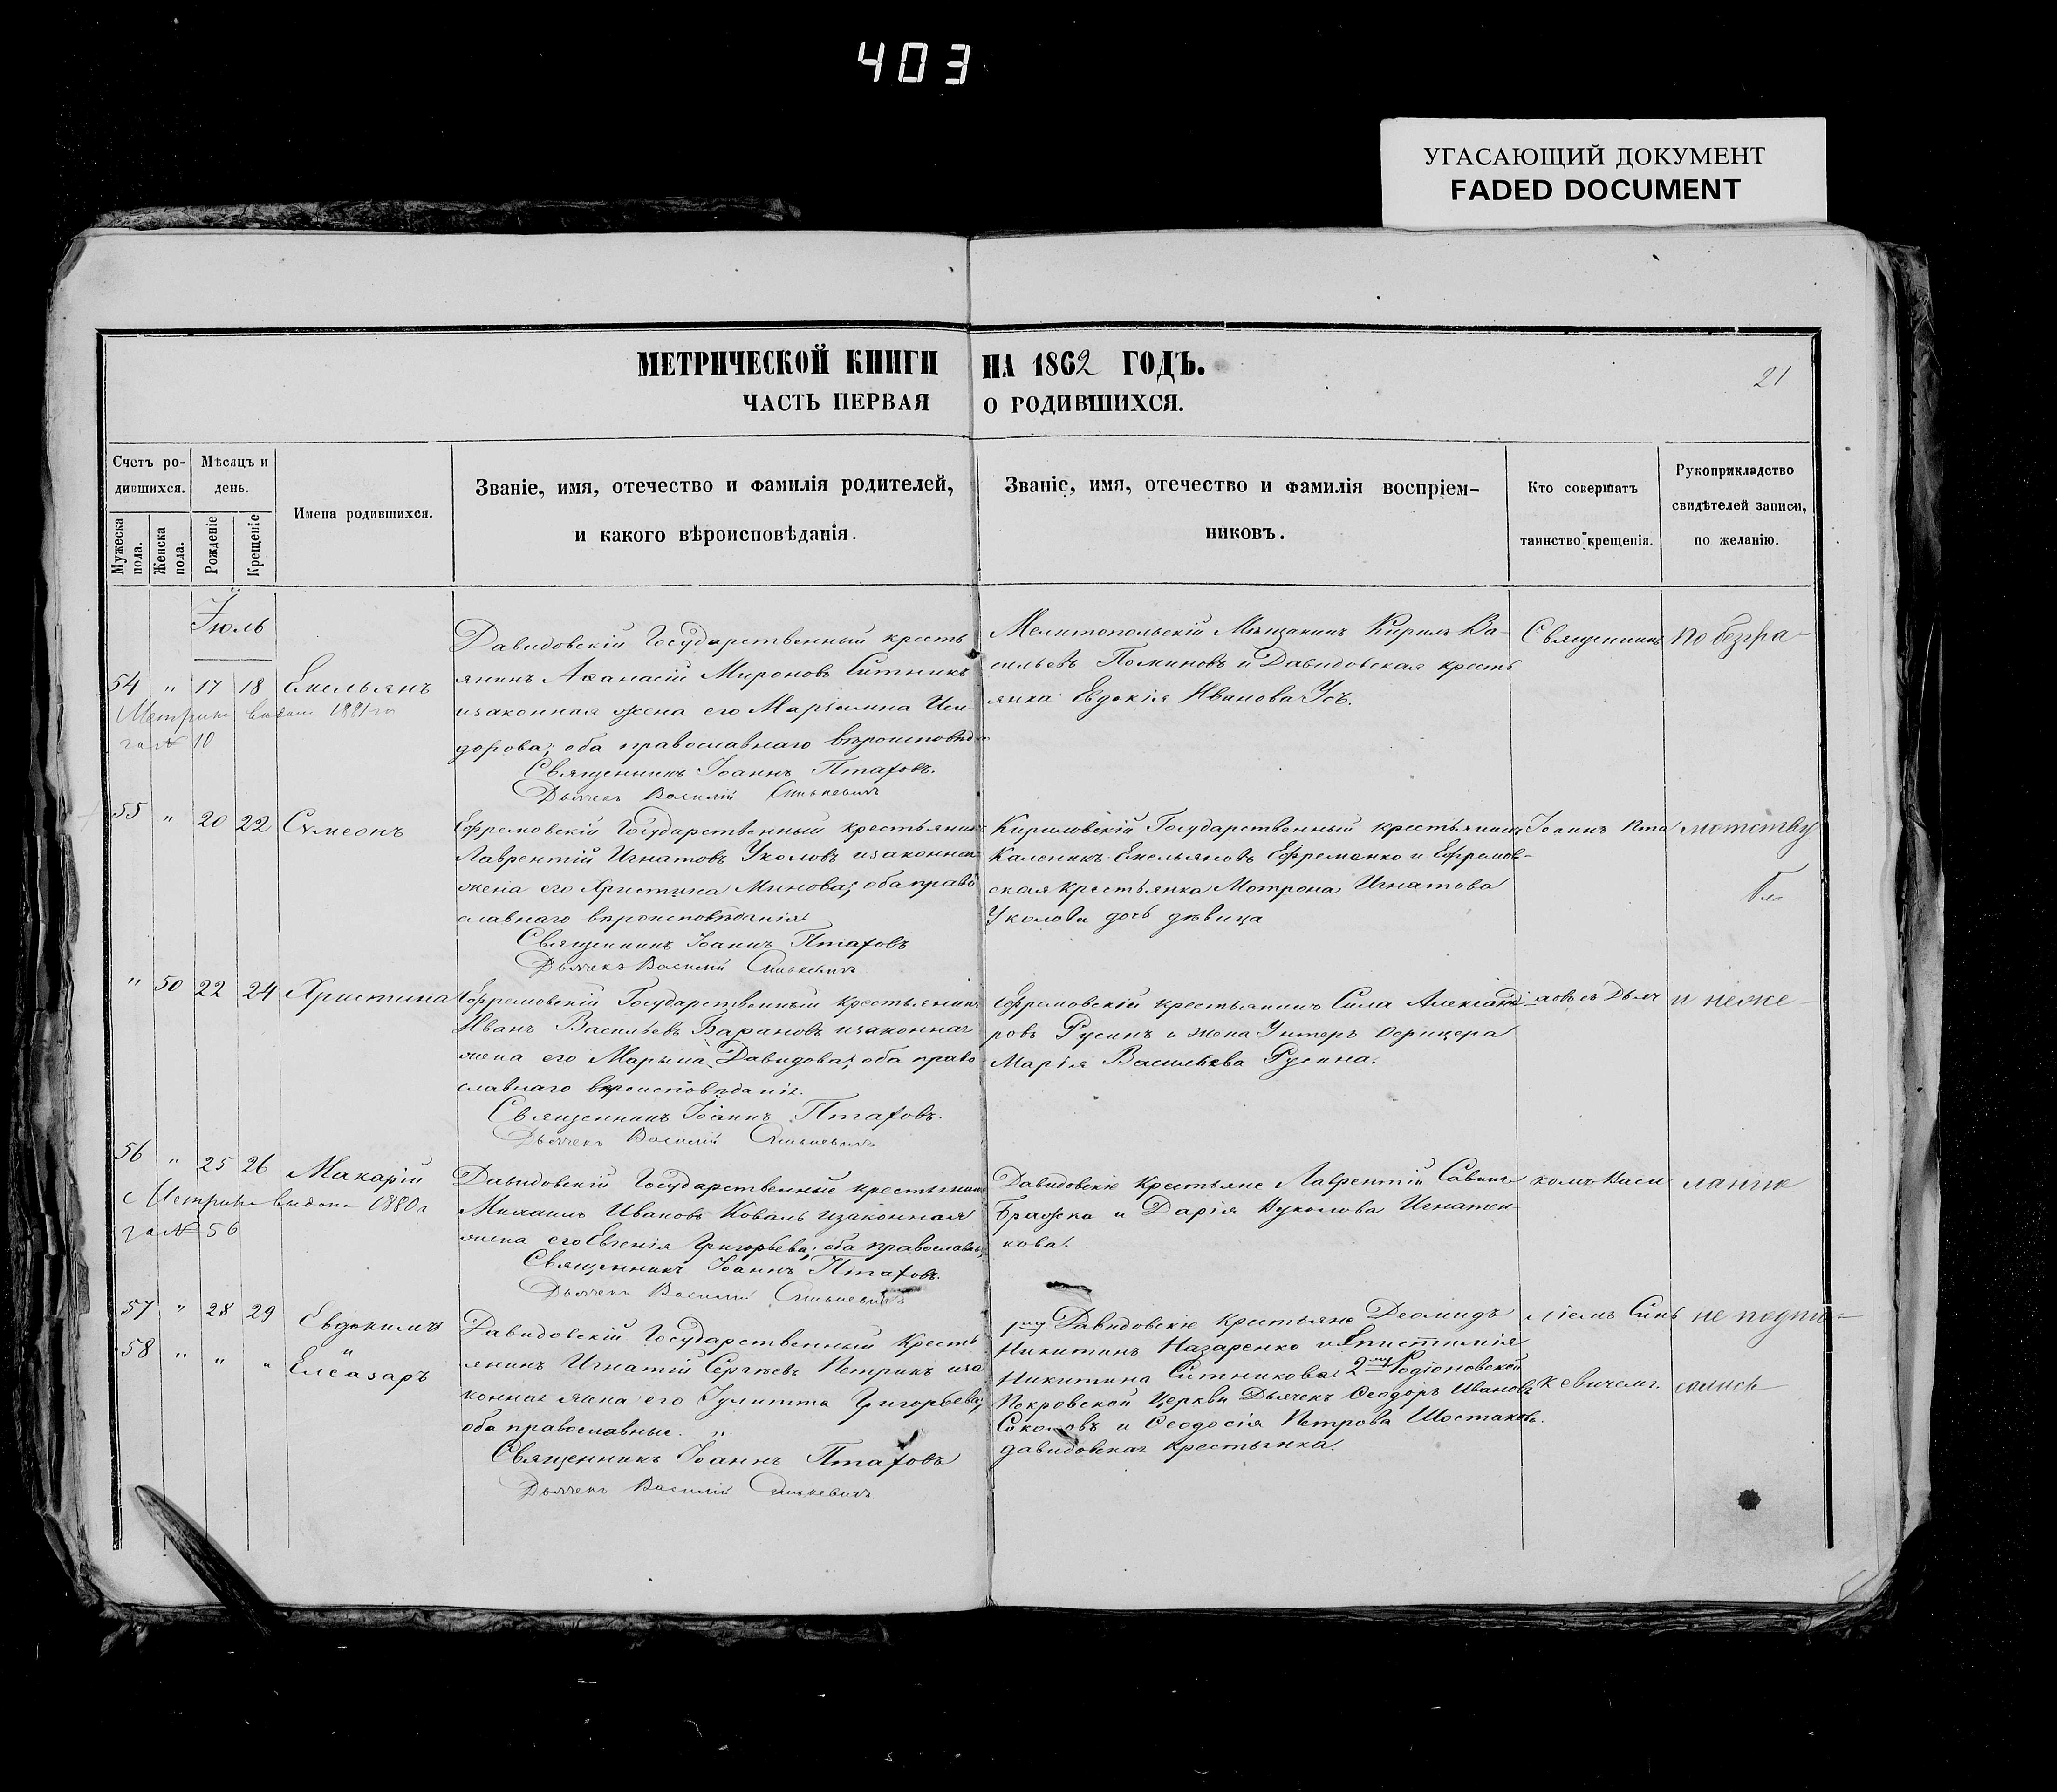 403
УГАСАЮЩИЙ ДОКУМЕНТ
FADED DOCUMENT
МЕТРИЧЕСКОЙ КНИГИ НА 1862 ГОДЪ.
21
ЧАСТЬ ПЕРВАЯ О РОДИВШИХСЯ.
Счетъ ро-
дившихся.
Мужеска пола.
Женска пола.
Мѣсяцъ и
день.
Рожденіе
Крещеніе
Имена родившихся.
Званіе, имя, отечество и фамилія родителей,
и какого вѣроисповѣданія.
Званіе, имя, отечество и фамилія воспріем-
никовъ.
Кто совершатъ
таинство крещенія.
Рукоприкладство
свидѣтелей записи,
по желанію.
Іюль
54 " 17 18 Емельянъ
Метрика выдана 1881 го
за № 10
Давидовскій Государственный кресть
янинъ Аѳанасій Мироновъ Ситникъ
изаконная жена его Маріамна Иси-
дорова; оба православнаго вѣроисповѣд
Священникъ Іоаннъ Птаховъ.
Дьячекъ Василій Синькевичъ
Мелитопольскій Мѣщанинъ Кирилъ Ва-
сильевъ Поминовъ и Давидовская кресть
янка Евдокія Иванова Усъ.
Священникъ
по безгра-
55 " 20 22 Сѵмеонъ
Ефремовскій Государственный крестьянинъ
Лаврентій Игнатовъ Уколовъ изаконная
жена его Христина Минова; оба право
славнаго вѣроисповѣданія
Священникъ Іоаннъ Птаховъ
Дьячекъ Василій Синькевичъ
Кириловскій Государственный крестьянинъ
Каленикъ Емельяновъ Ефременко и Ефремов-
ская крестьянка Мотрона Игнатова
Уколова дочь дѣвица
Іоаннъ Пта
мотству
" 50 22 24 Христина
Ефремовскій Государственный крестьянинъ
Иванъ Васильевъ Барановъ изаконная
жена его Марына Давидова; оба право
славнаго вѣроисповѣданія.
Священникъ Іоаннъ Птаховъ.
Дьячекъ Василій Синькевичъ
Ефремовскій крестьянинъ Сила Александ
ровъ Русинъ и жена Унтеръ Офицера
Марія Васильева Русина.
ховъ съ Дьяч
и неже-
56 " 25 26 Макарій
Метрика выдана 1880 г
за № 56
Давидовскій Государственный крестьянинъ
Михаилъ Ивановъ Коваль изаконная
жена его Евгенія Григорьева; оба православн;
Священникъ Іоаннъ Птаховъ.
Дьячекъ Василій Синькевичъ
Давидовскіе Крестьяне Лаврентій Савинъ
Бражка и Дарія Нуколова Игнатен-
кова.
комъ Васи
ланію
57 " 28 29 Евдокимъ
58 " " " Елеазаръ
Давидовскій Государственный Кресть
янинъ Игнатій Сергѣевъ Петрикъ иза
конная жена его Іулитта Григорьева;
оба православные. "
Священникъ Іоаннъ Птаховъ
Дьячекъ Василій Синькевичъ
1му Давидовскіе Крестьяне Деомидъ
Никитинъ Назаренко и Епистимія
Никитина Ситникова; 2му Родіоновской
Покровской Церкви Дьячекъ Ѳеодоръ Ивановъ
Соколовъ и Ѳеодосія Петрова Шостакова
давидовская крестьянка.
ліемъ Синь
кевичемъ.
не подпи-
сались